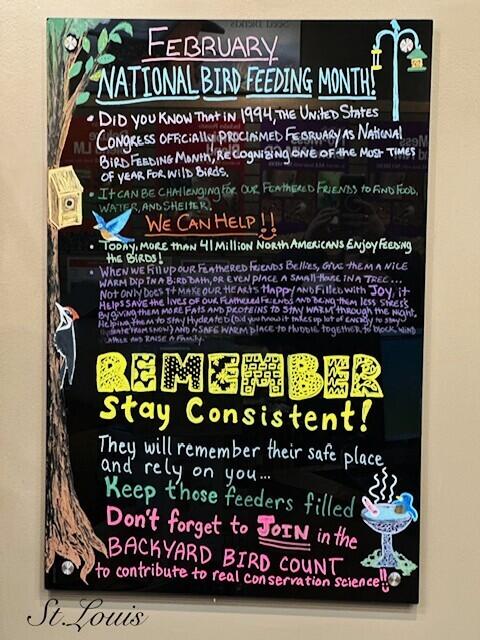 February
National Bird Feeding Month!
• Did you know that in 1994, the United States
Congress officially proclaimed February as National
Bird Feeding Month, recognizing one of the most times
of year for wild birds.
• It can be challenging for our feathered friends to find food,
water, and shelter.
We Can Help!!
• Today, more than 41 million North Americans enjoy feeding
the birds!
• When we fill up our feathered friends bellies, give them a nice
warm dip in a bird bath, or even place a small house in a tree...
Not only does it make our hearts happy and filled with joy, it
helps save the lives of our feathered friends and being them less stress
By giving them more fats and proteins to stay warm through the night,
Helping them to stay hydrated (Did you know it takes up lot of energy to stay
hydrate from snow) and a safe warm place to huddle together to block wind
and raise a family.
REMEMBER
Stay Consistent!
They will remember their safe place
and rely on you...
Keep those feeders filled
Don't forget to JOIN in the
BACKYARD BIRD COUNT
to contribute to real conservation science!!
St.Louis